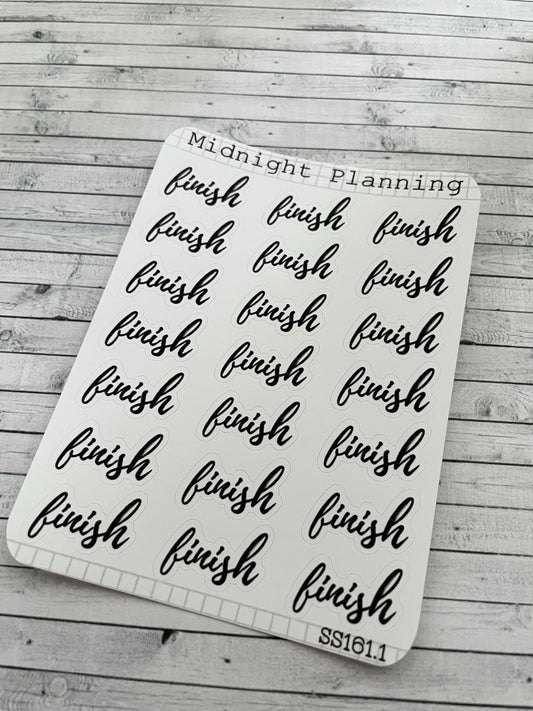 Midnight Planning
finish finish finish
finish finish finish
finish finish finish
finish finish finish
finish finish finish
finish finish finish
finish finish finish
SS161.1